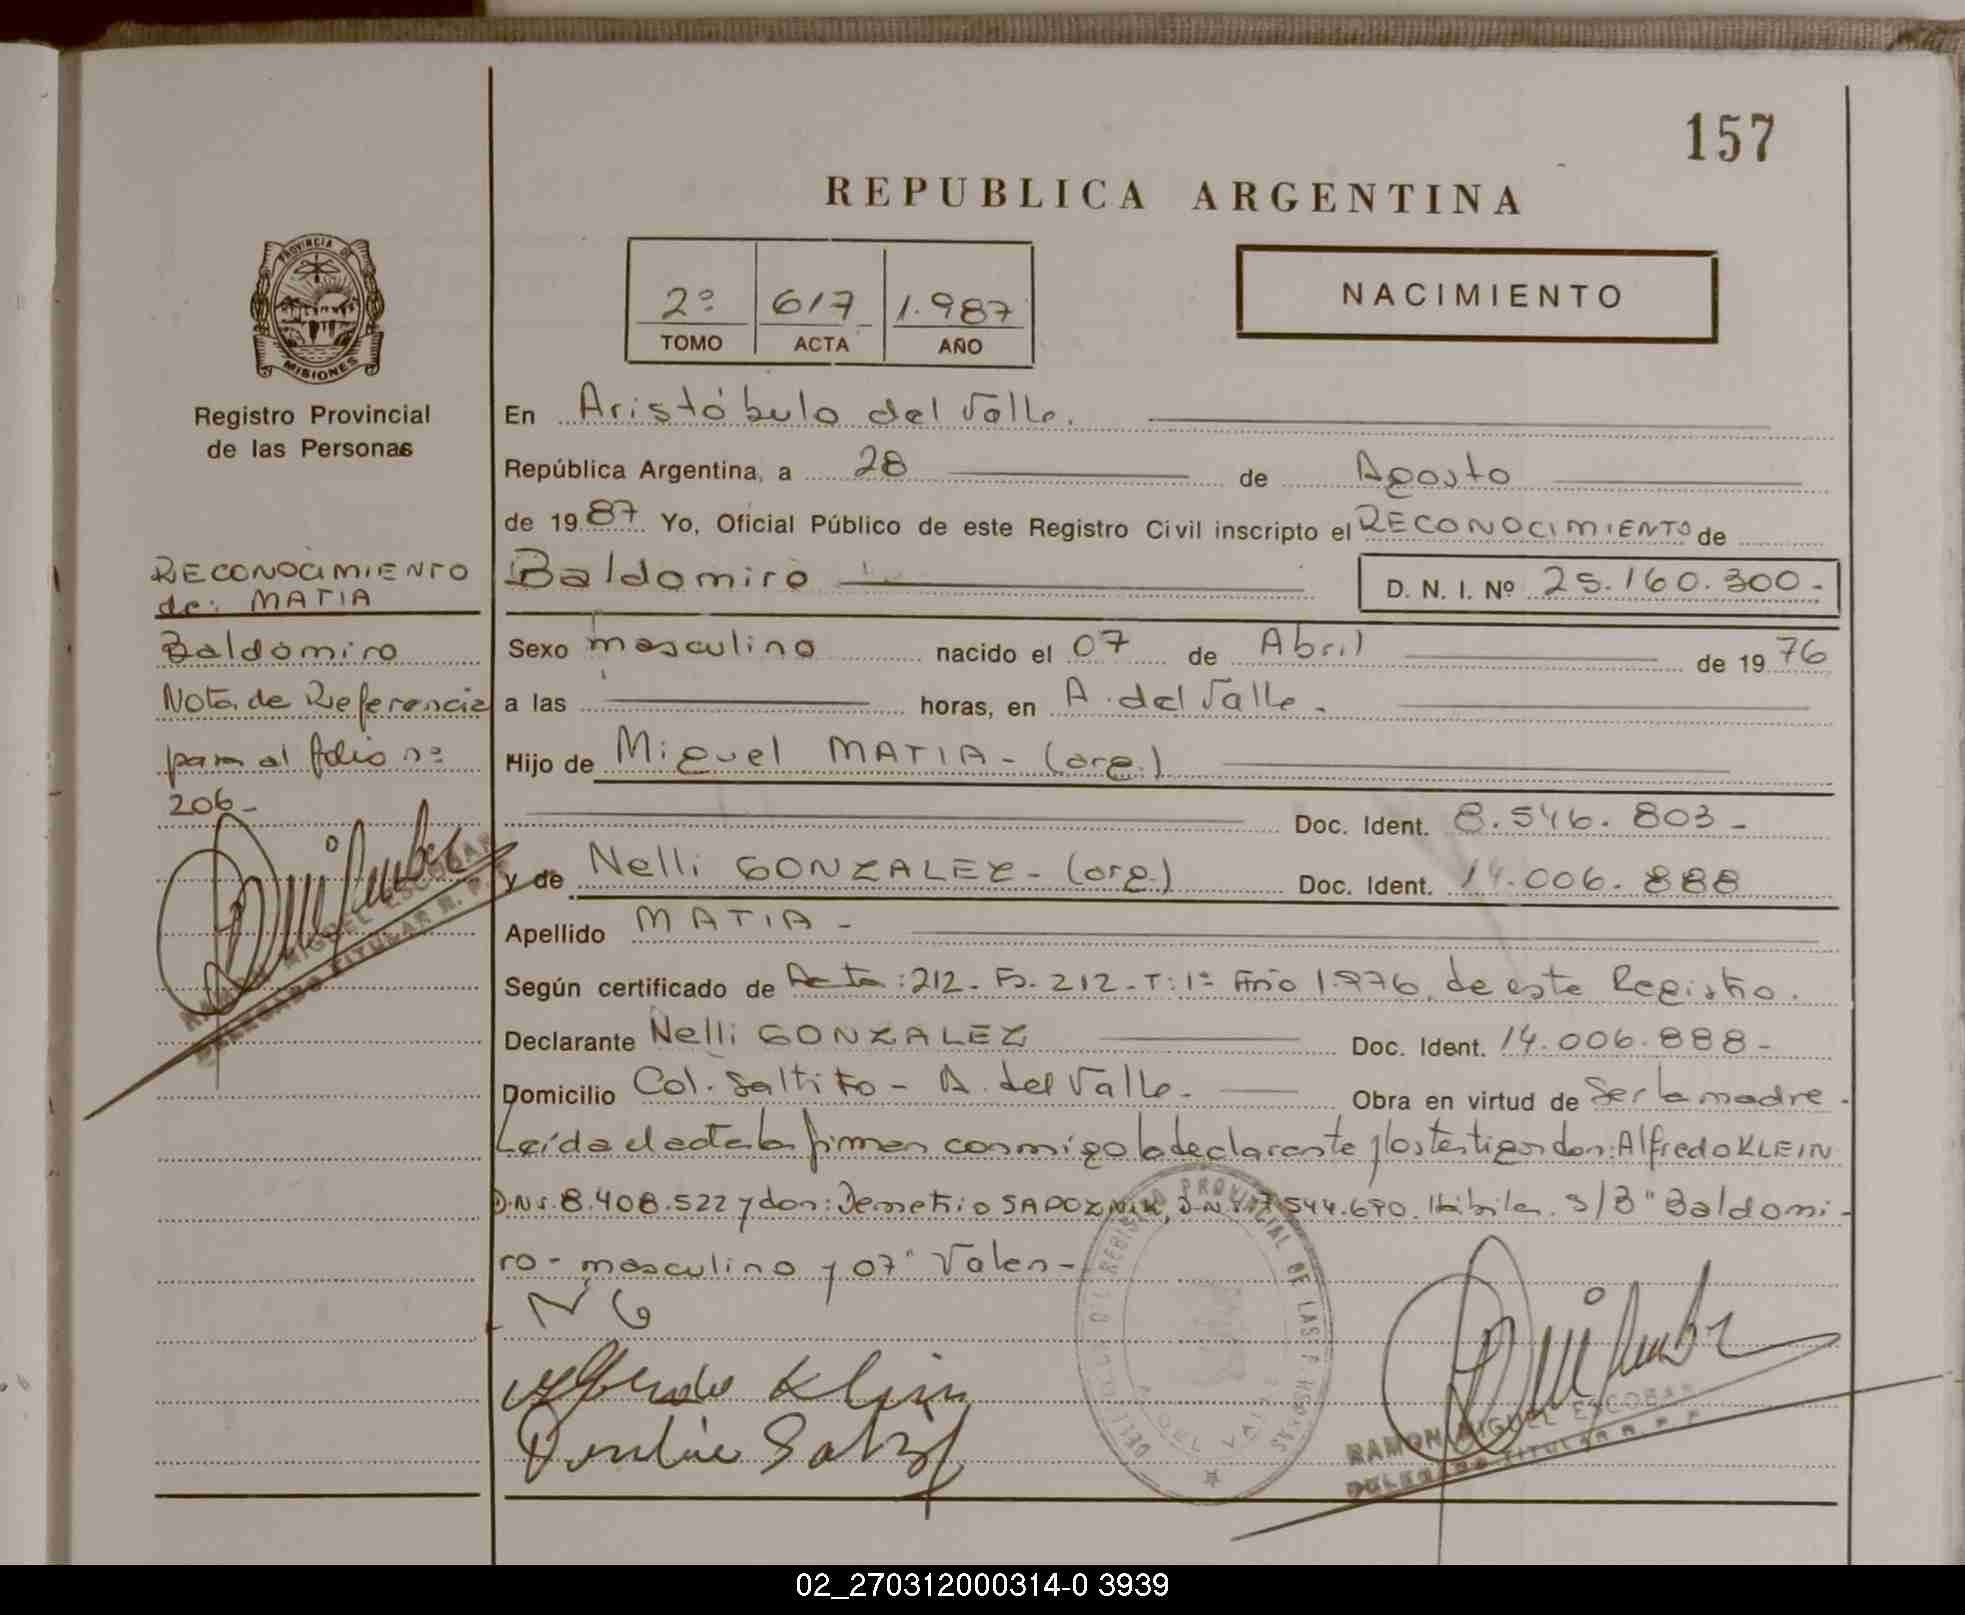 157
REPUBLICA ARGENTINA
NACIMIENTO
2º 617 1.987
TOMO ACTA AÑO
PROVINCIA DE
MISIONES
Registro Provincial
de las Personas
RECONOCIMIENTO
de: MATIA
Baldomiro
Nota de Referencia
para al folio nº
206-
RAMON MIGUEL ESCOBAR
DELEGADO TITULAR R. P. P.
En Aristóbulo del Valle.
República Argentina, a 28 de Agosto
de 1987 Yo, Oficial Público de este Registro Civil inscripto el RECONOCIMIENTO de
Baldomiro D. N. I. Nº 25.160.300.-
Sexo masculino nacido el 07 de Abril de 1976
a las horas, en A. del Valle.
Hijo de Miguel MATIA - (arg.)
Doc. Ident. 8.546.803-
y de Nelli GONZALEZ - (arg.) Doc. Ident. 14.006.888
Apellido MATIA -
Según certificado de Acta: 212. Fo. 212. T: 1º Año 1.976, de este Registro.
Declarante Nelli GONZALEZ Doc. Ident. 14.006.888-
Domicilio Col. Saltito - A. del Valle. Obra en virtud de Ser la madre.
Leída el acta la firman conmigo la declarante y los testigos don: Alfredo KLEIN
D.N.I. 8.408.522 y don: Demetrio SAPOZNIK, D.N.I. 7.544.690. Hábiles. S/B "Baldomi-
ro - masculino y 07" Valen-
N G
Alfredo Klein
DEL REGISTRO PROVINCIAL DE LAS PERSONAS
A. DEL VALLE
RAMON MIGUEL ESCOBAR
DELEGADO TITULAR R. P. P.
02_270312000314-0 3939